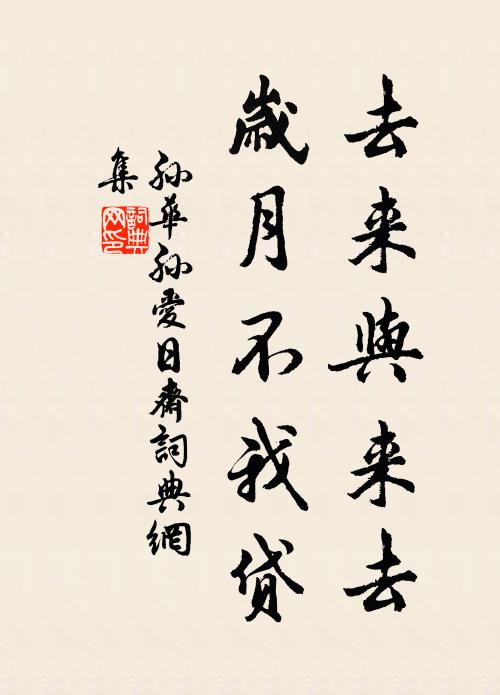 去来與来去
歲月不我貸
孙華孙愛日齋詞典網
集
詞典
网印